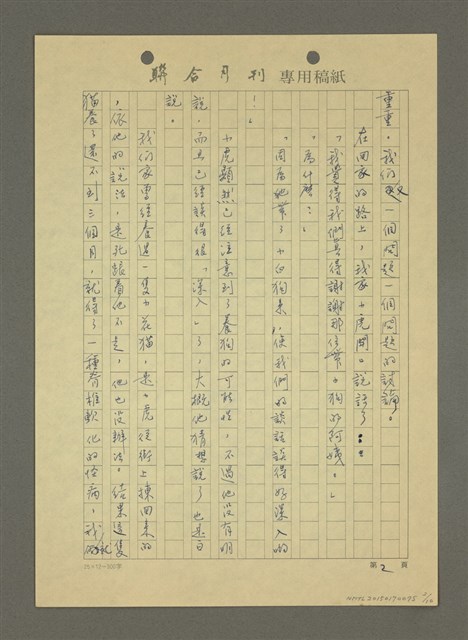 聯合月刊 專用稿紙
重重。我們又一個問題一個問題的談論。
在回家的路上，我家小虎開口說話了：
「我覺得我們真得謝謝那位帶小狗的阿姨。」
「為什麼？」
「因為她帶了小白狗來，使我們的談話談得好深入喲
！」
小虎顯然已經注意到了養狗的可能性，不過他沒有明
說，而且已經談得很「深入」了，大概他猜想說了也是白
說。
我們家曾經養過一隻小花貓，是小虎從街上揀回來的
，依他的說法，是牠跟着他不走，他也沒辦法。結果這隻
貓養了還不到三個月，就得了一種脊椎軟化的怪病，我
25×12=300字
第2頁
NMTL20150190095 2/10